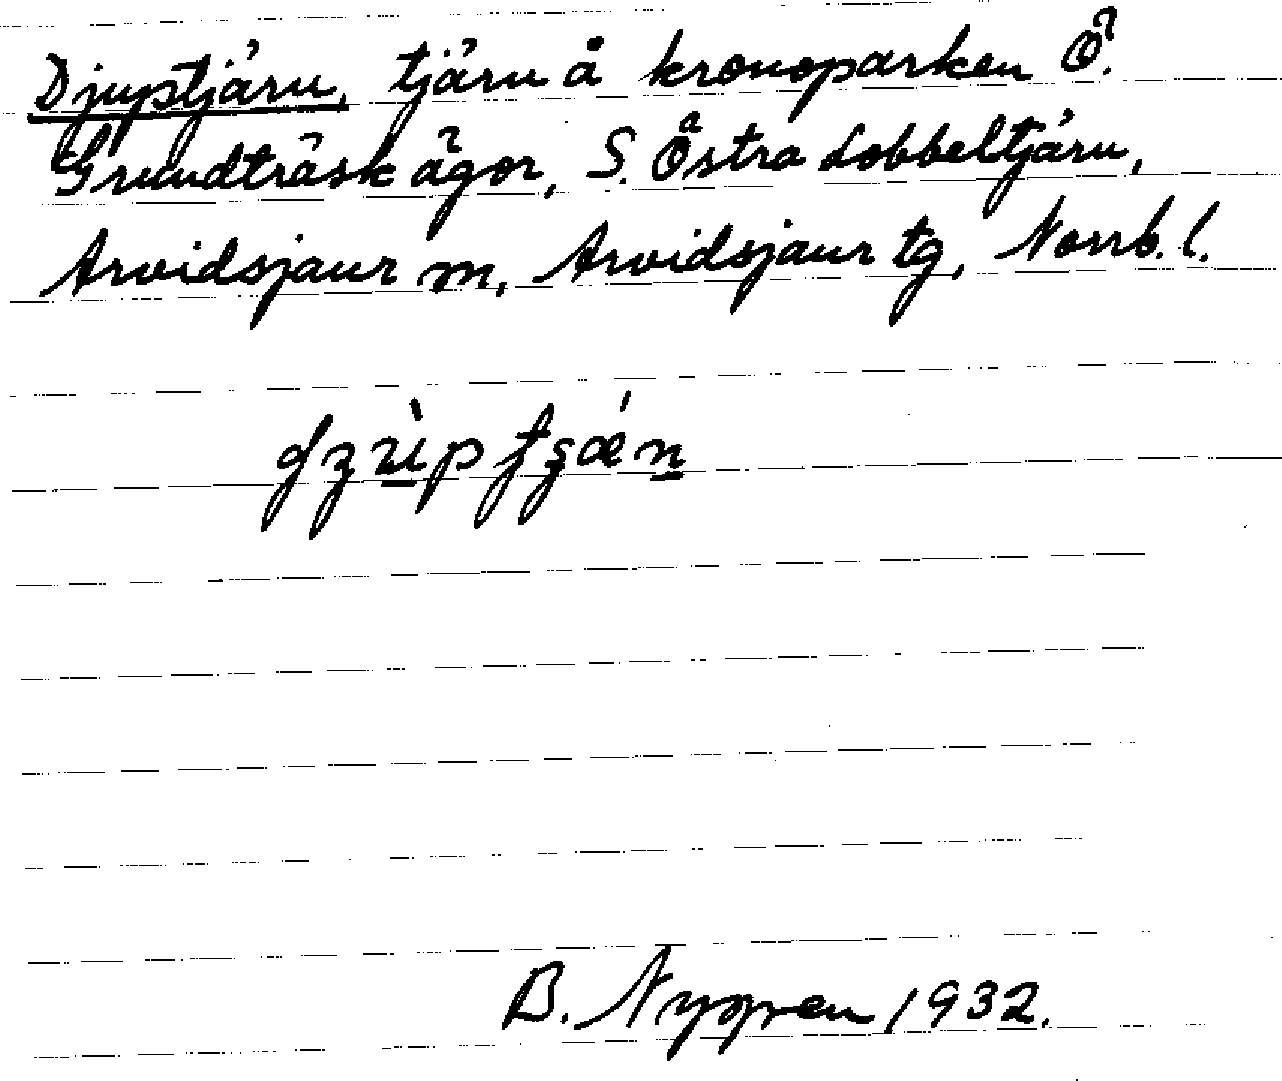 Djuptjärn, tjärn å kronoparken Ö.
Grundträsk ägor, S. Östra Lobbeltjärn,
Arvidsjaur sn, Arvidsjaur tg, Norrb. l.
B. Nygren 1932.